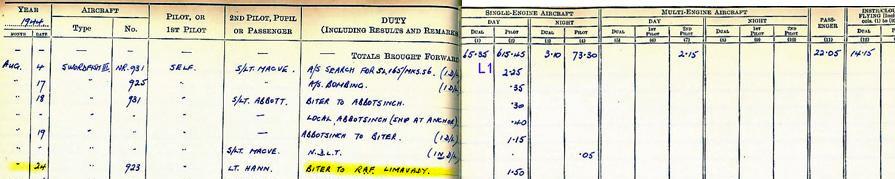 YEAR AIRCRAFT PILOT, OR 2ND PILOT, PUPIL DUTY SINGLE-ENGINE AIRCRAFT MULTI-ENGINE AIRCRAFT PASS- INSTR/CLOUD
1944 Type No. 1ST PILOT OR PASSENGER (INCLUDING RESULTS AND REMARKS DAY NIGHT DAY NIGHT ENGER FLYING
MONTH DATE DUAL PILOT DUAL PILOT DUAL 1ST PILOT 2ND PILOT DUAL 1ST PILOT 2ND PILOT
(1) (2) (3) (4) (5) (6) (7) (8) (9) (10) (11) (12)
— — — — — — TOTALS BROUGHT FORWARD 65.35 615.45 3.10 73.30 2.15 22.05 14.15
AUG. 4 SWORDFISH III. NR.931 SELF. S/LT. MACVE. A/S SEARCH FOR 52,165/MKS.56. (1 D/L) L1 2.25
" 17 " 925 " — A/S. BOMBING. (1 D/L) .35
" 18 " 931 " S/LT. ABBOTT. BITER TO ABBOTSINCH. .30
" " " — LOCAL ABBOTSINCH (SHIP AT ANCHOR) .40
" 19 " " — ABBOTSINCH TO BITER. (1 D/L) 1.15
" " " S/LT. MACVE. N.D.L.T. (1 N.D/L) .05
" 24 " 923 " LT. HANN. BITER TO RAF LIMAVADY. 1.50